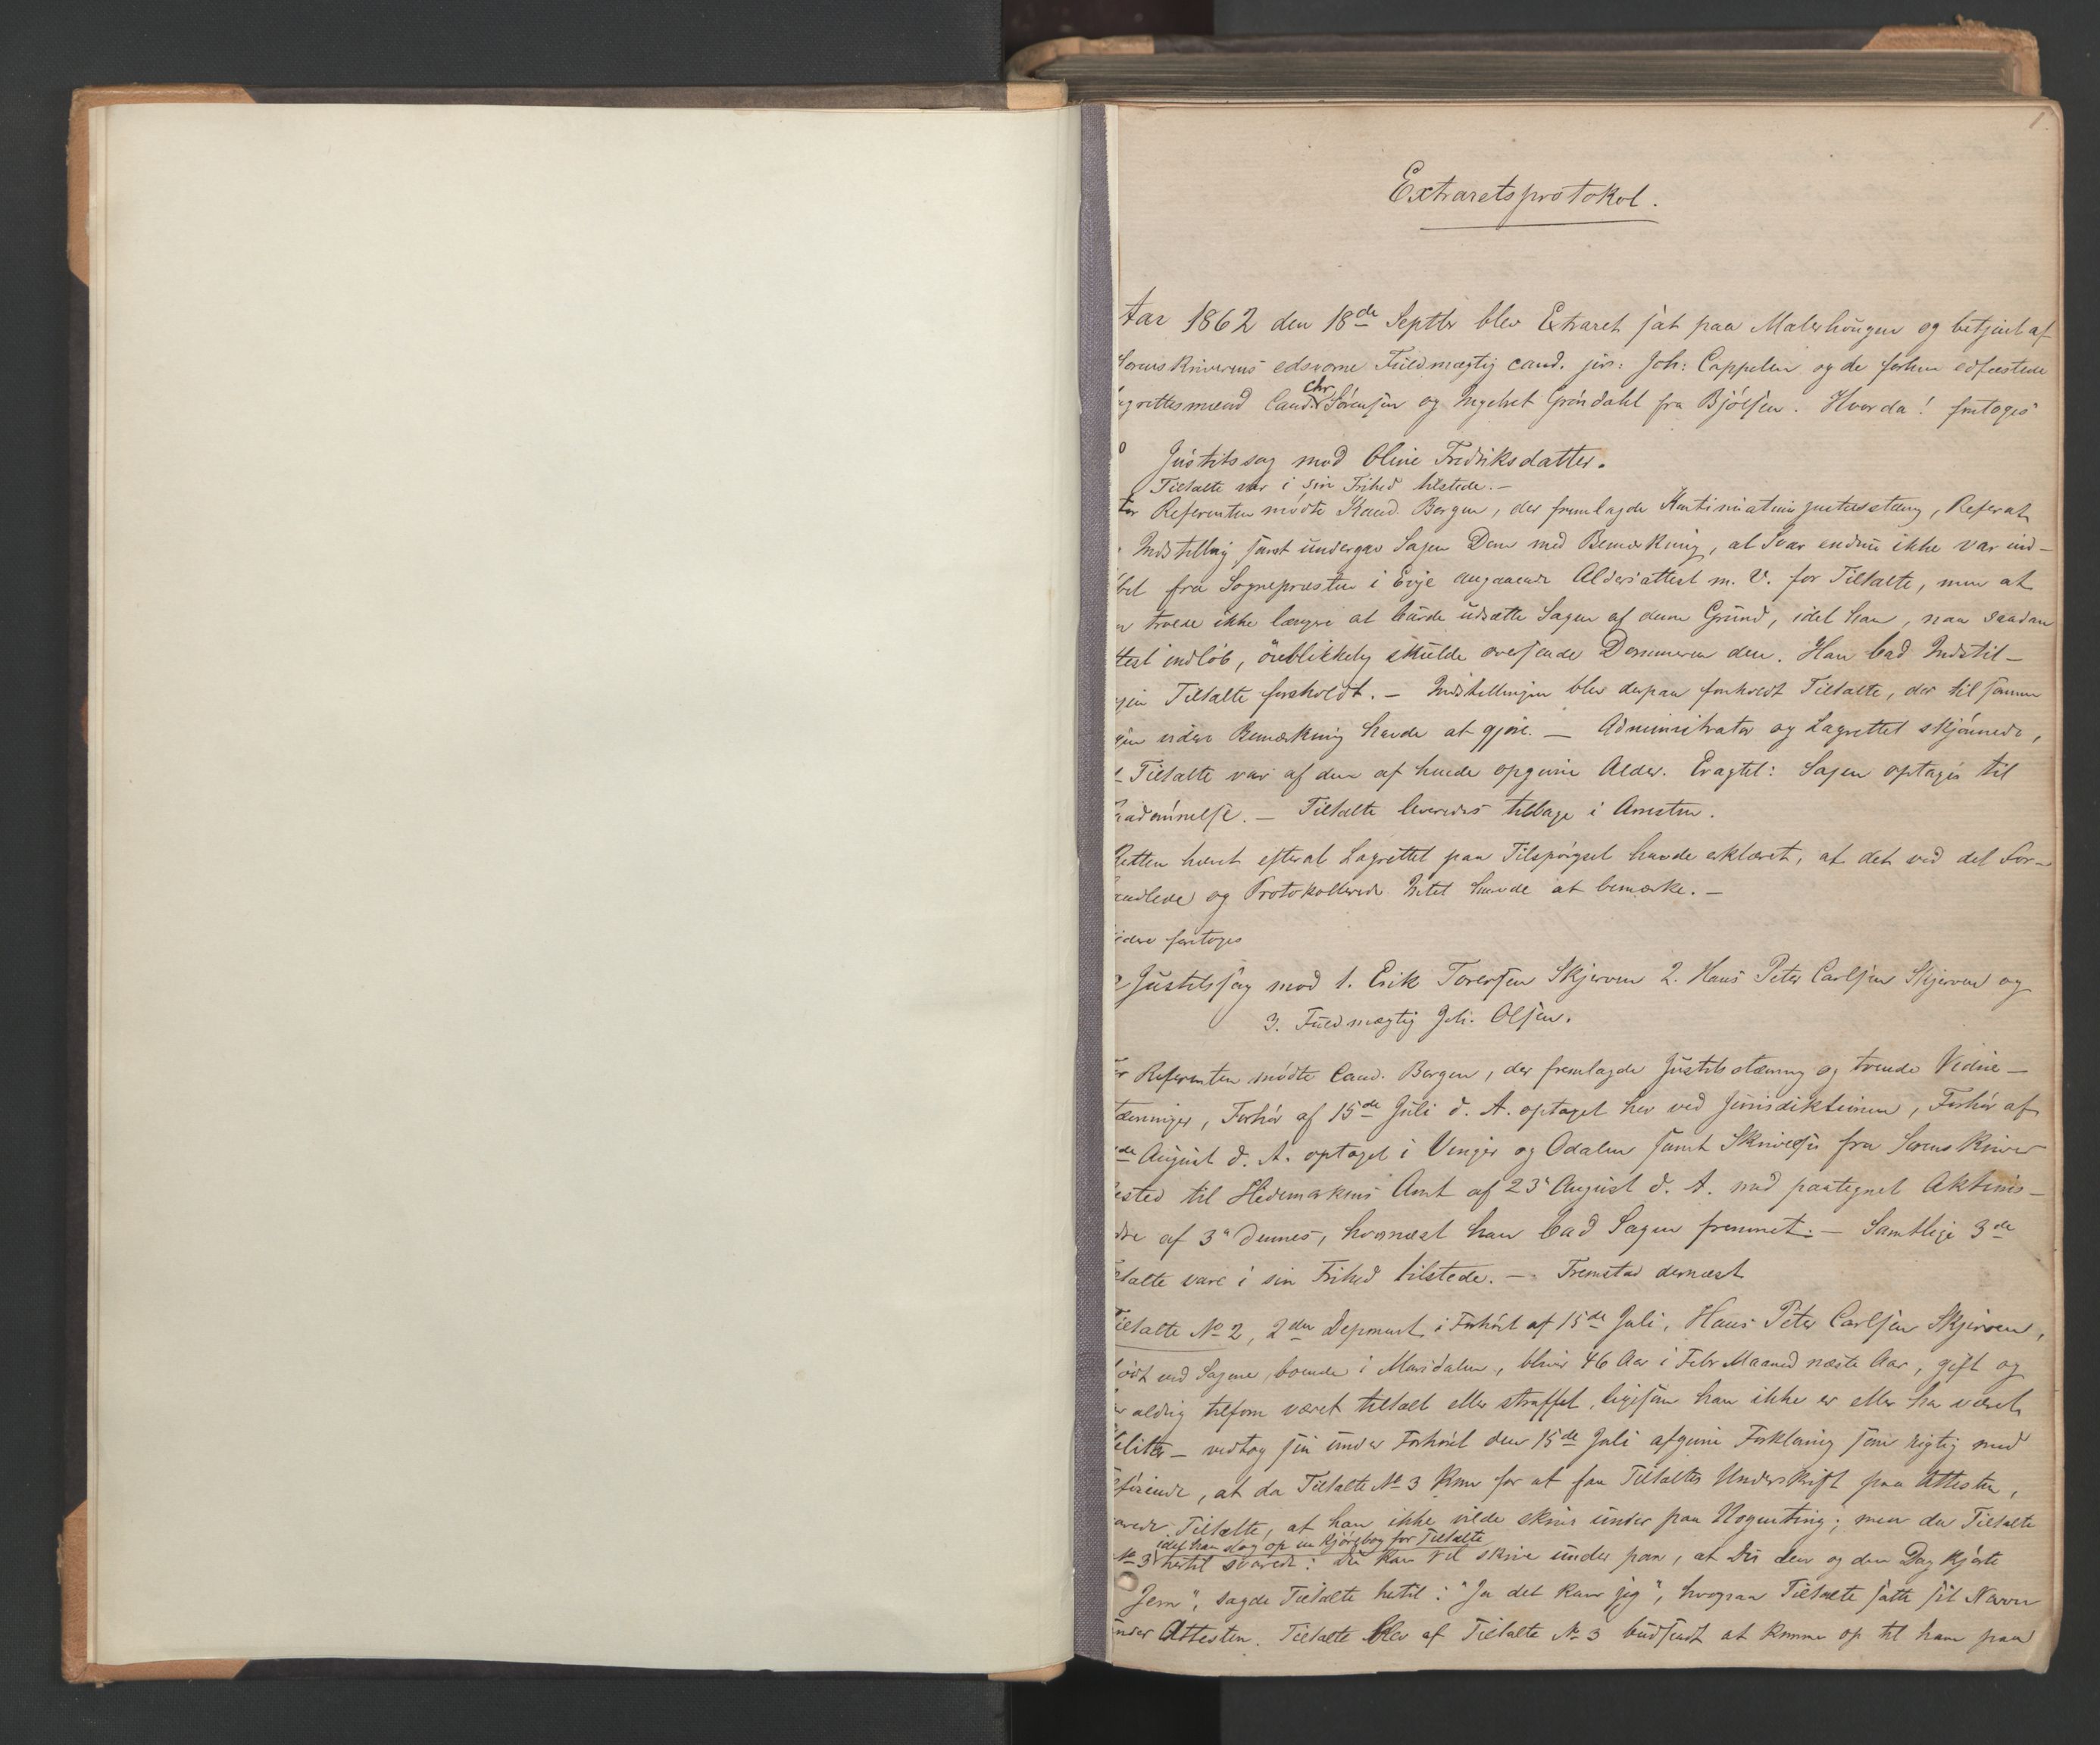 1
Extraretsprotokol.
Aar 1862 den 18de Septbr blev Extraret sat paa Malerhaugen og betjent af
Sorenskriverens edsvorne Fuldmægtig cand. jur: Joh: Cappelen og de forhen edfæstede
Lagrettesmænd Cand. Chr. Sörensen og Ingebret Gröndahl fra Bjölsen. Hvorda! foretoges
Justitssag mod Oline Fredriksdatter.
Tiltalte var i sin Frihed tilstede. —
For Referenten mödte Kand. Borgen, der fremlagde Kontinuationsjustitsstevning, Referat
Indstilling samt undergav Sagen Dom med Bemærkning, at Svar endnu ikke var ind-
löbet fra Sognepresten i Evje angaaende Aldersattest m. V. for Tiltalte, men at
troede ikke længere at burde udsætte Sagen af denne Grund, idet han, naar saadan
Attest indlöb, öieblikkelig skulde oversende Dommeren den. Han bad Indstil-
lingen Tiltalte foreholdt. — Indstillingen blev derpaa foreholdt Tiltalte, der til samme
ingen videre Bemærkning havde at gjöre. — Administrator og Lagrettet skjönnede,
at Tiltalte var af den af hende opgivne Alder. Eragtet: Sagen optages til
Paadömmelse. — Tiltalte leveredes tilbage i Arresten.
Retten hævet efterat Lagrettet paa Tilspörgsel havde erklæret, at det ved det For-
handlede og Protokollerede Intet havde at bemærke. —
Videre foretoges
Justitssag mod 1. Erik Toresen Skjerven 2. Hans Peter Carlsen Skjerven og
3. Fuldmægtig Joh. Olsen.
For Referenten mödte Cand. Borgen, der fremlagde Justitsstævning og trende Vidne-
stævninger, Forhör af 15de Juli d. A. optaget her ved Jurisdiktionen, Forhör af
de August d. A. optaget i Vinger og Odalen samt Skrivelse fra Sorenskriver
sted til Hedemarkens Amt af 23 August d. A. med paategnet Aktions-
ordre af 3die dennes, hvornæst han bad Sagen fremmet. — Samtlige 3de
Tiltalte vare i sin Frihed tilstede. — Fremstod dernæst
Tiltalte No 2, 2den Deponent i Forhöret af 15de Juli, Hans Peter Carlsen Skjerven,
födt ved Sagene, boende i Maridalen, bliver 46 Aar i Febr Maaned næste Aar, gift og
har aldrig tilforn været tiltalt eller straffet, ligesom han ikke er eller har været
Militær — vedtog sin under Forhöret den 15de Juli afgivne Forklaring som rigtig med
Tilföiende, at da Tiltalte No 3 kom for at faa Tiltaltes Underskrift paa Attesten,
svarede Tiltalte, at han ikke vilde skrive under paa Nogenting; men da Tiltalte
idet han slog op en Kjörebog for Tiltalte
No 3 hertil svarede: Du kan vel skrive under paa, at Du den og den Dag kjörte
Jern", sagde Tiltalte hertil: "Ja det kan jeg", hvorpaa Tiltalte satte sit Navn
under Attesten. Tiltalte blev af Tiltalte No 3 budsendt at komme op til ham paa